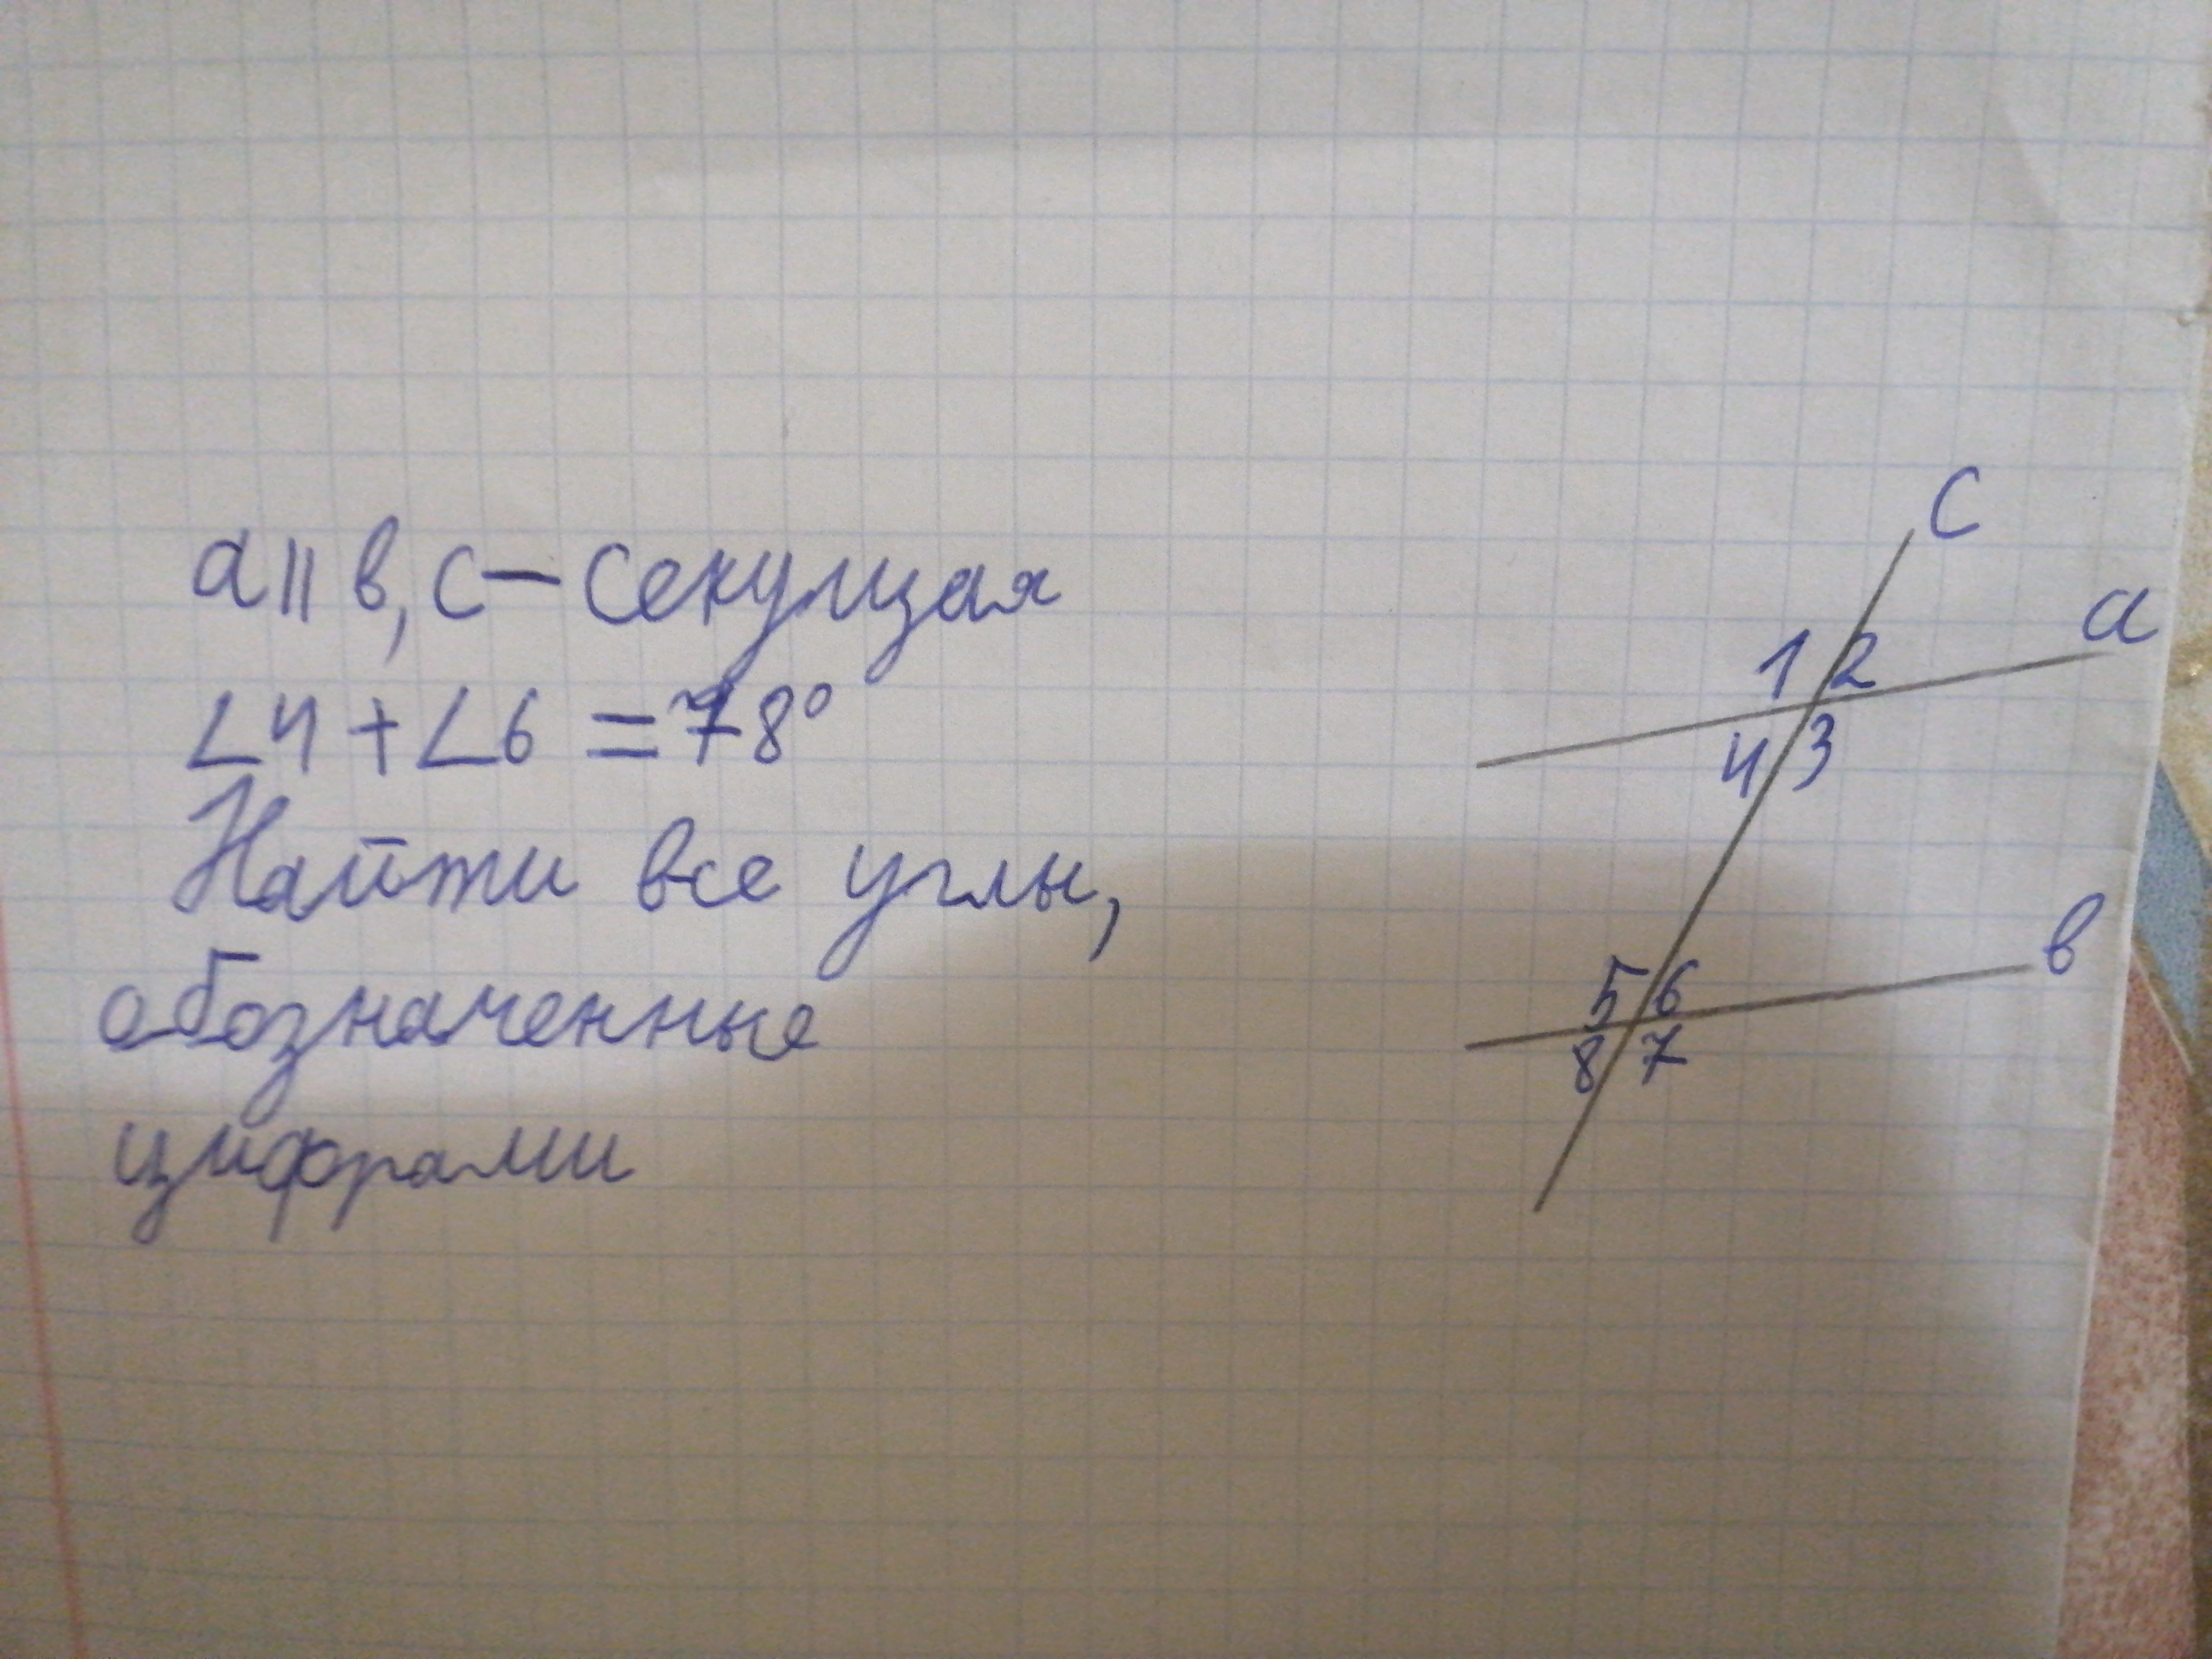 a || в, с — секущая
∠4 + ∠6 = 78°
Найти все углы,
обозначенные
цифрами
с
a
1 2
4 3
в
5 6
8 7